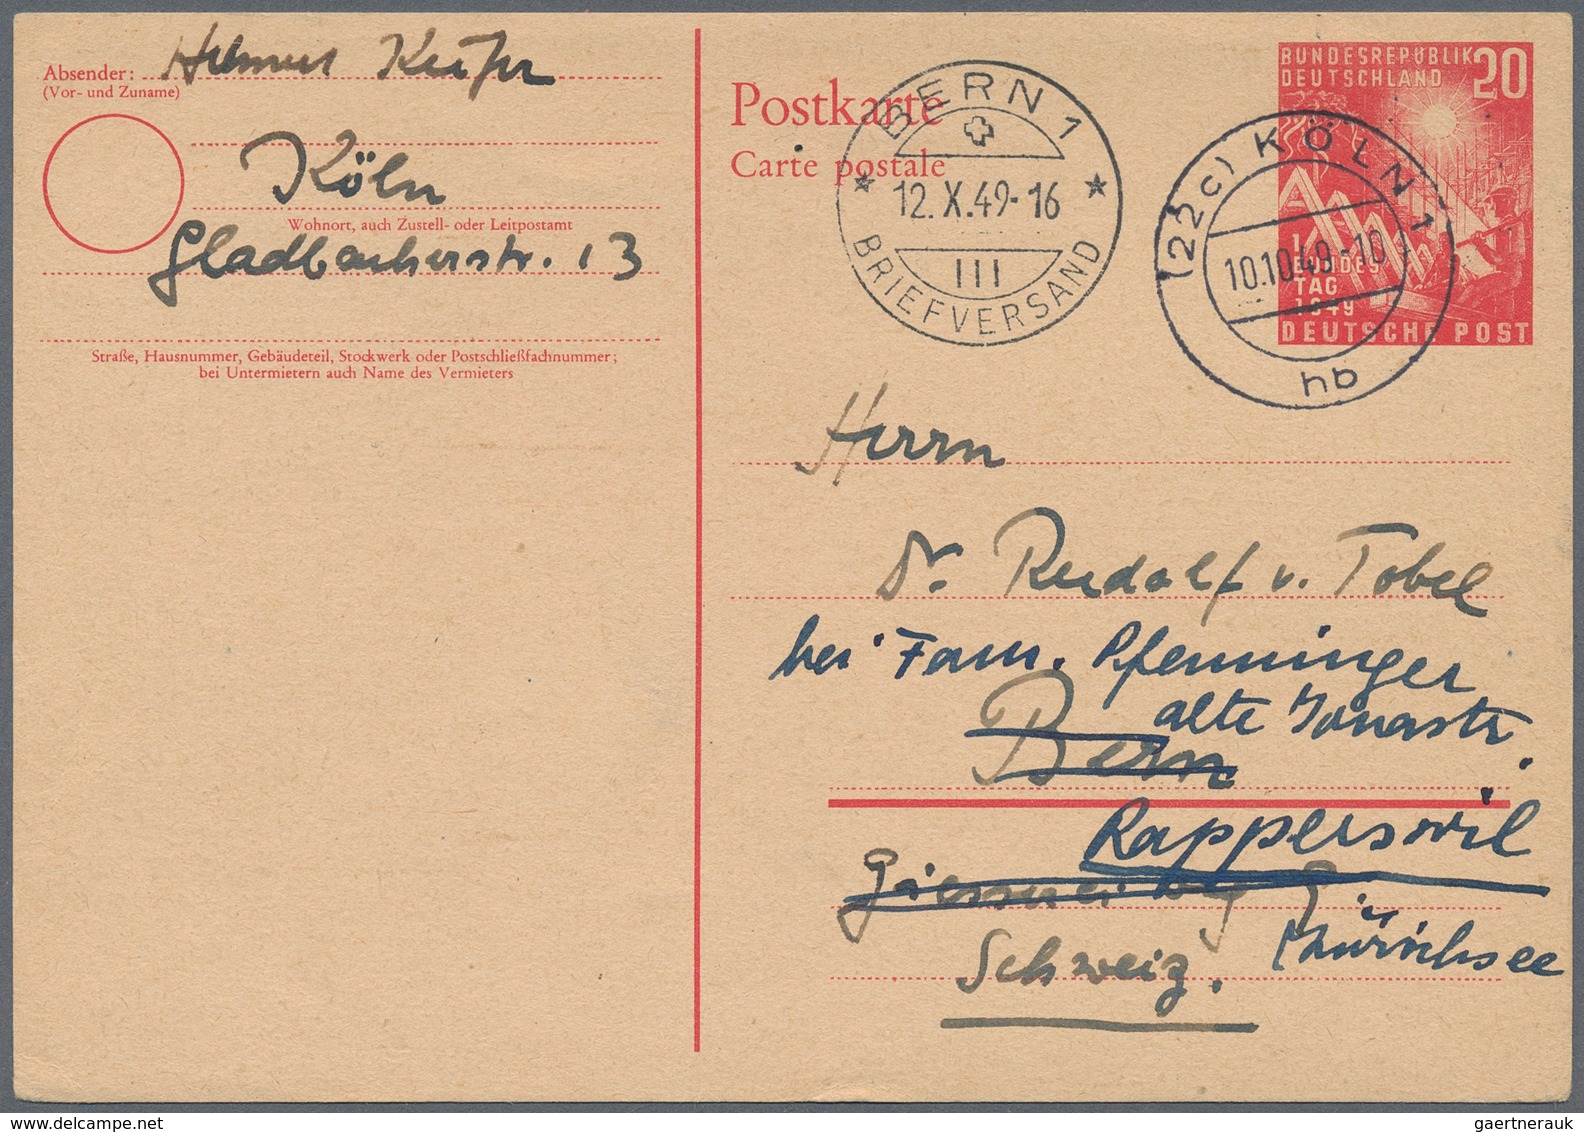 Absender: Helmut
(Vor- und Zuname)
Köln
Wohnort, auch Zustell- oder Leitpostamt
Gladbacherstr. 13
Straße, Hausnummer, Gebäudeteil, Stockwerk oder Postschließfachnummer;
bei Untermietern auch Name des Vermieters
Postkarte
Carte postale
BERN 1
12. X. 49-16
III
BRIEFVERSAND
BUNDESREPUBLIK 20
DEUTSCHLAND
1.
BUNDES
TAG
1949
DEUTSCHE POST
(22c) KÖLN 1
10.10.49-10
hb
Herrn
Dr. Rudolf v. Tobel
bei Fam. Pfenninger
alte Jonastr.
Bern
Rapperswil
Schweiz.
Zürichsee
gaertnerauk